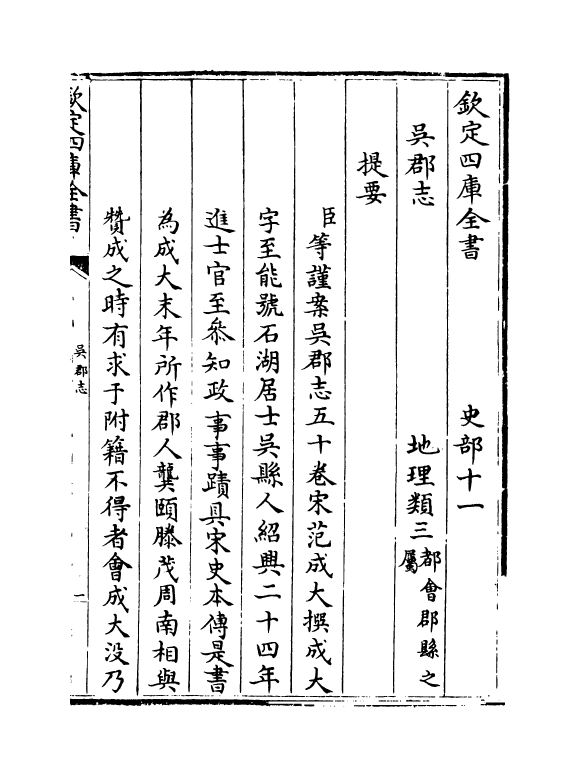 欽定四庫全書　史部十一
吳郡志　地理類三都會郡縣之屬
提要
臣等謹案吳郡志五十卷宋范成大撰成大
字至能號石湖居士吳縣人紹興二十四年
進士官至叅知政事事蹟具宋史本傳是書
為成大末年所作郡人龔頤滕茂周南相與
贊成之時有求于附籍不得者會成大没乃
欽定四庫全書
吳郡志
一